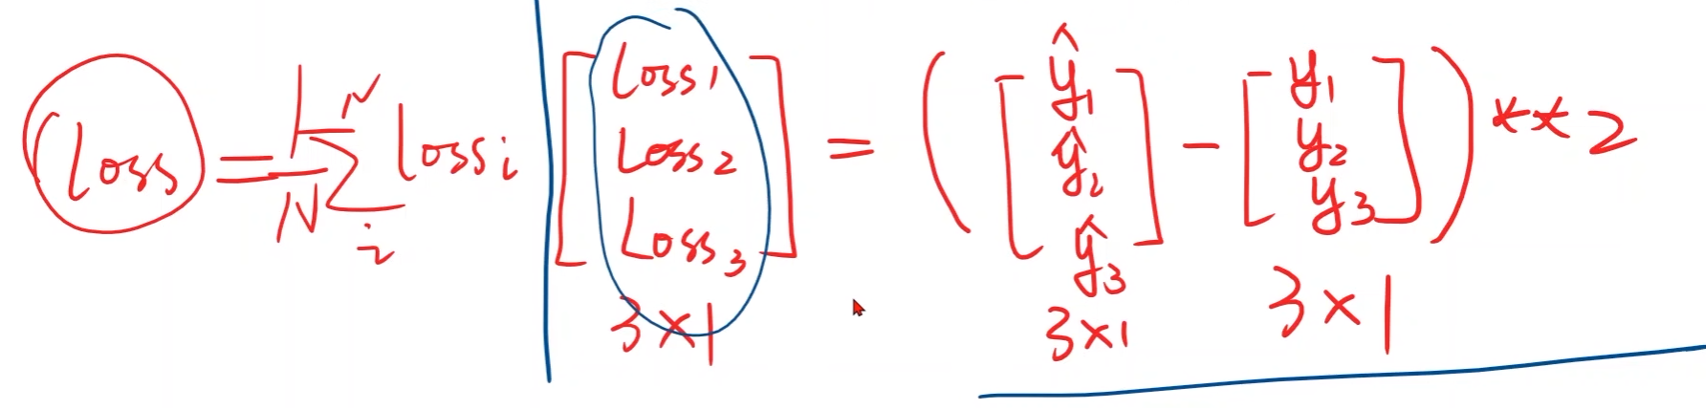 loss = 1/N ∑_i^N loss_i | [loss_1 loss_2 loss_3] = ([ŷ_1 ŷ_2 ŷ_3] - [y_1 y_2 y_3])**2
3×1 3×1 3×1